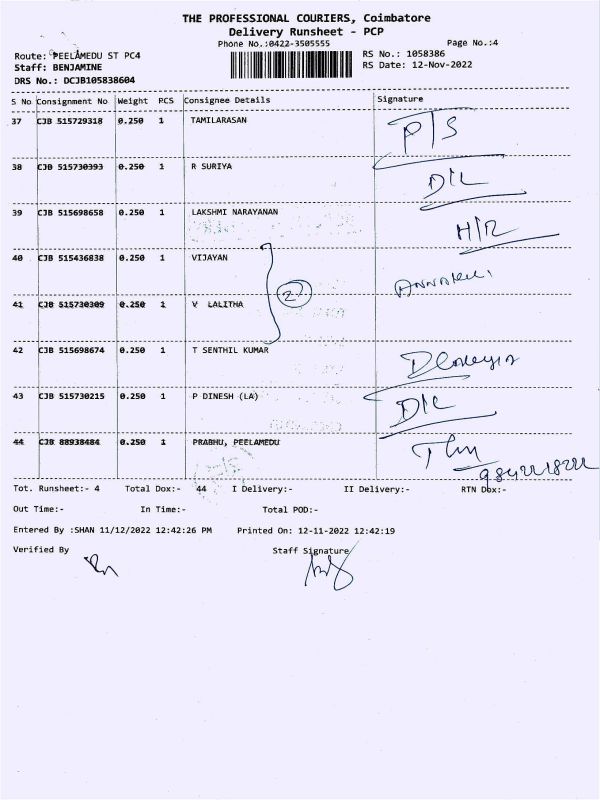 THE PROFESSIONAL COURIERS, Coimbatore
Delivery Runsheet - PCP
Phone No.:0422-3505555 Page No.:4
Route: PEELAMEDU ST PC4 RS No.: 1058386
Staff: BENJAMINE RS Date: 12-Nov-2022
DRS No.: DCJB105838604
S No Consignment No Weight PCS Consignee Details Signature
37 CJB 515729318 0.250 1 TAMILARASAN P/S
38 CJB 515730393 0.250 1 R SURIYA D/L
39 CJB 515698658 0.250 1 LAKSHMI NARAYANAN H/R
40 CJB 515436838 0.250 1 VIJAYAN
2
41 CJB 515730309 0.250 1 V LALITHA
42 CJB 515698674 0.250 1 T SENTHIL KUMAR
43 CJB 515730215 0.250 1 P DINESH (LA) D/L
44 CJB 88938484 0.250 1 PRABHU, PEELAMEDU
9842218222
Tot. Runsheet:- 4 Total Dox:- 44 I Delivery:- II Delivery:- RTN Dox:-
Out Time:- In Time:- Total POD:-
Entered By :SHAN 11/12/2022 12:42:26 PM Printed On: 12-11-2022 12:42:19
Verified By Staff Signature